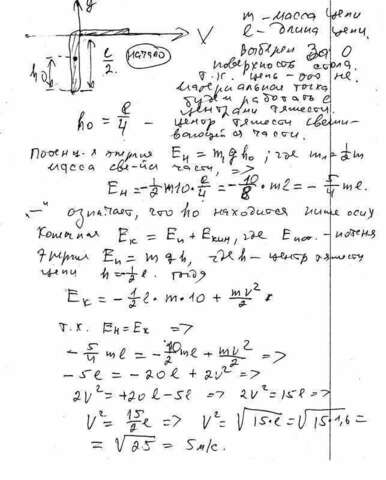 y
m - масса цепи
l - длина цепи.
h₀
l/2.
начало
V
Выберем За 0
поверхность стола.
Т.к. цепь - это не
материальная точка
будем работать с
центрами тяжести.
h₀ = l/4 - центр тяжести свеши-
вающейся части.
Потенц-я энергия Eн = m₁gh₀; где m₁ = 1/2 m
масса све-йся части, =>
Eн = -1/2 m10·l/4 = -10/8·ml = -5/4 ml.
„-" означает, что h₀ находится ниже оси
Конечная Eк = Eп + Eкин, где Eпот. - потенц
энергия Eп = mgh, где h - центр тяжести
цепи h = 1/2 l. тогда
Eк = -1/2 l·m·10 + mv²/2.
т.к. Eн = Eк =>
-5/4 ml = -10/2 ml + mv²/2 =>
-5l = -20l + 2v² =>
2v² = +20l - 5l => 2v² = 15l =>
V² = 15/2 l => V² = √15·l = √15·1,6 =
= √25 = 5 м/с.